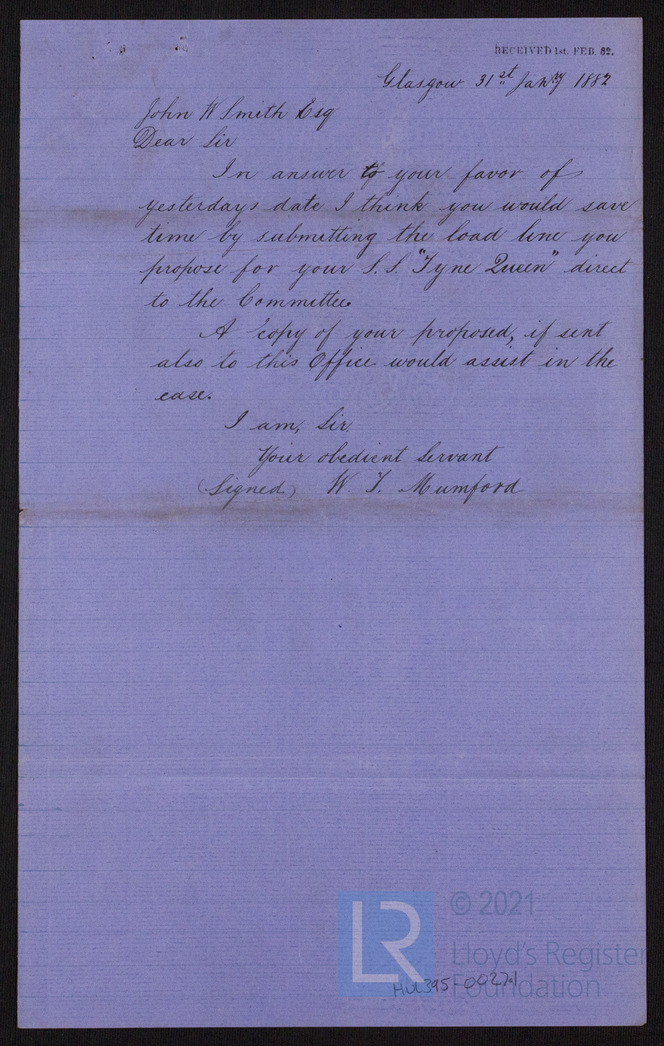 RECEIVED 1st. FEB. 82.
Glasgow 31st Jany 1882
John W Smith Esq
Dear Sir
In answer to your favor of
yesterdays date I think you would save
time by submitting the load line you
propose for your S.S. "Tyne Queen" direct
to the Committee.
A copy of your proposed, if sent
also to this Office would assist in the
case.
I am, Sir,
Your obedient Servant
(Signed) W. T. Mumford
LR
© 2021
Lloyd's Register
Foundation
HUL395-0027-l